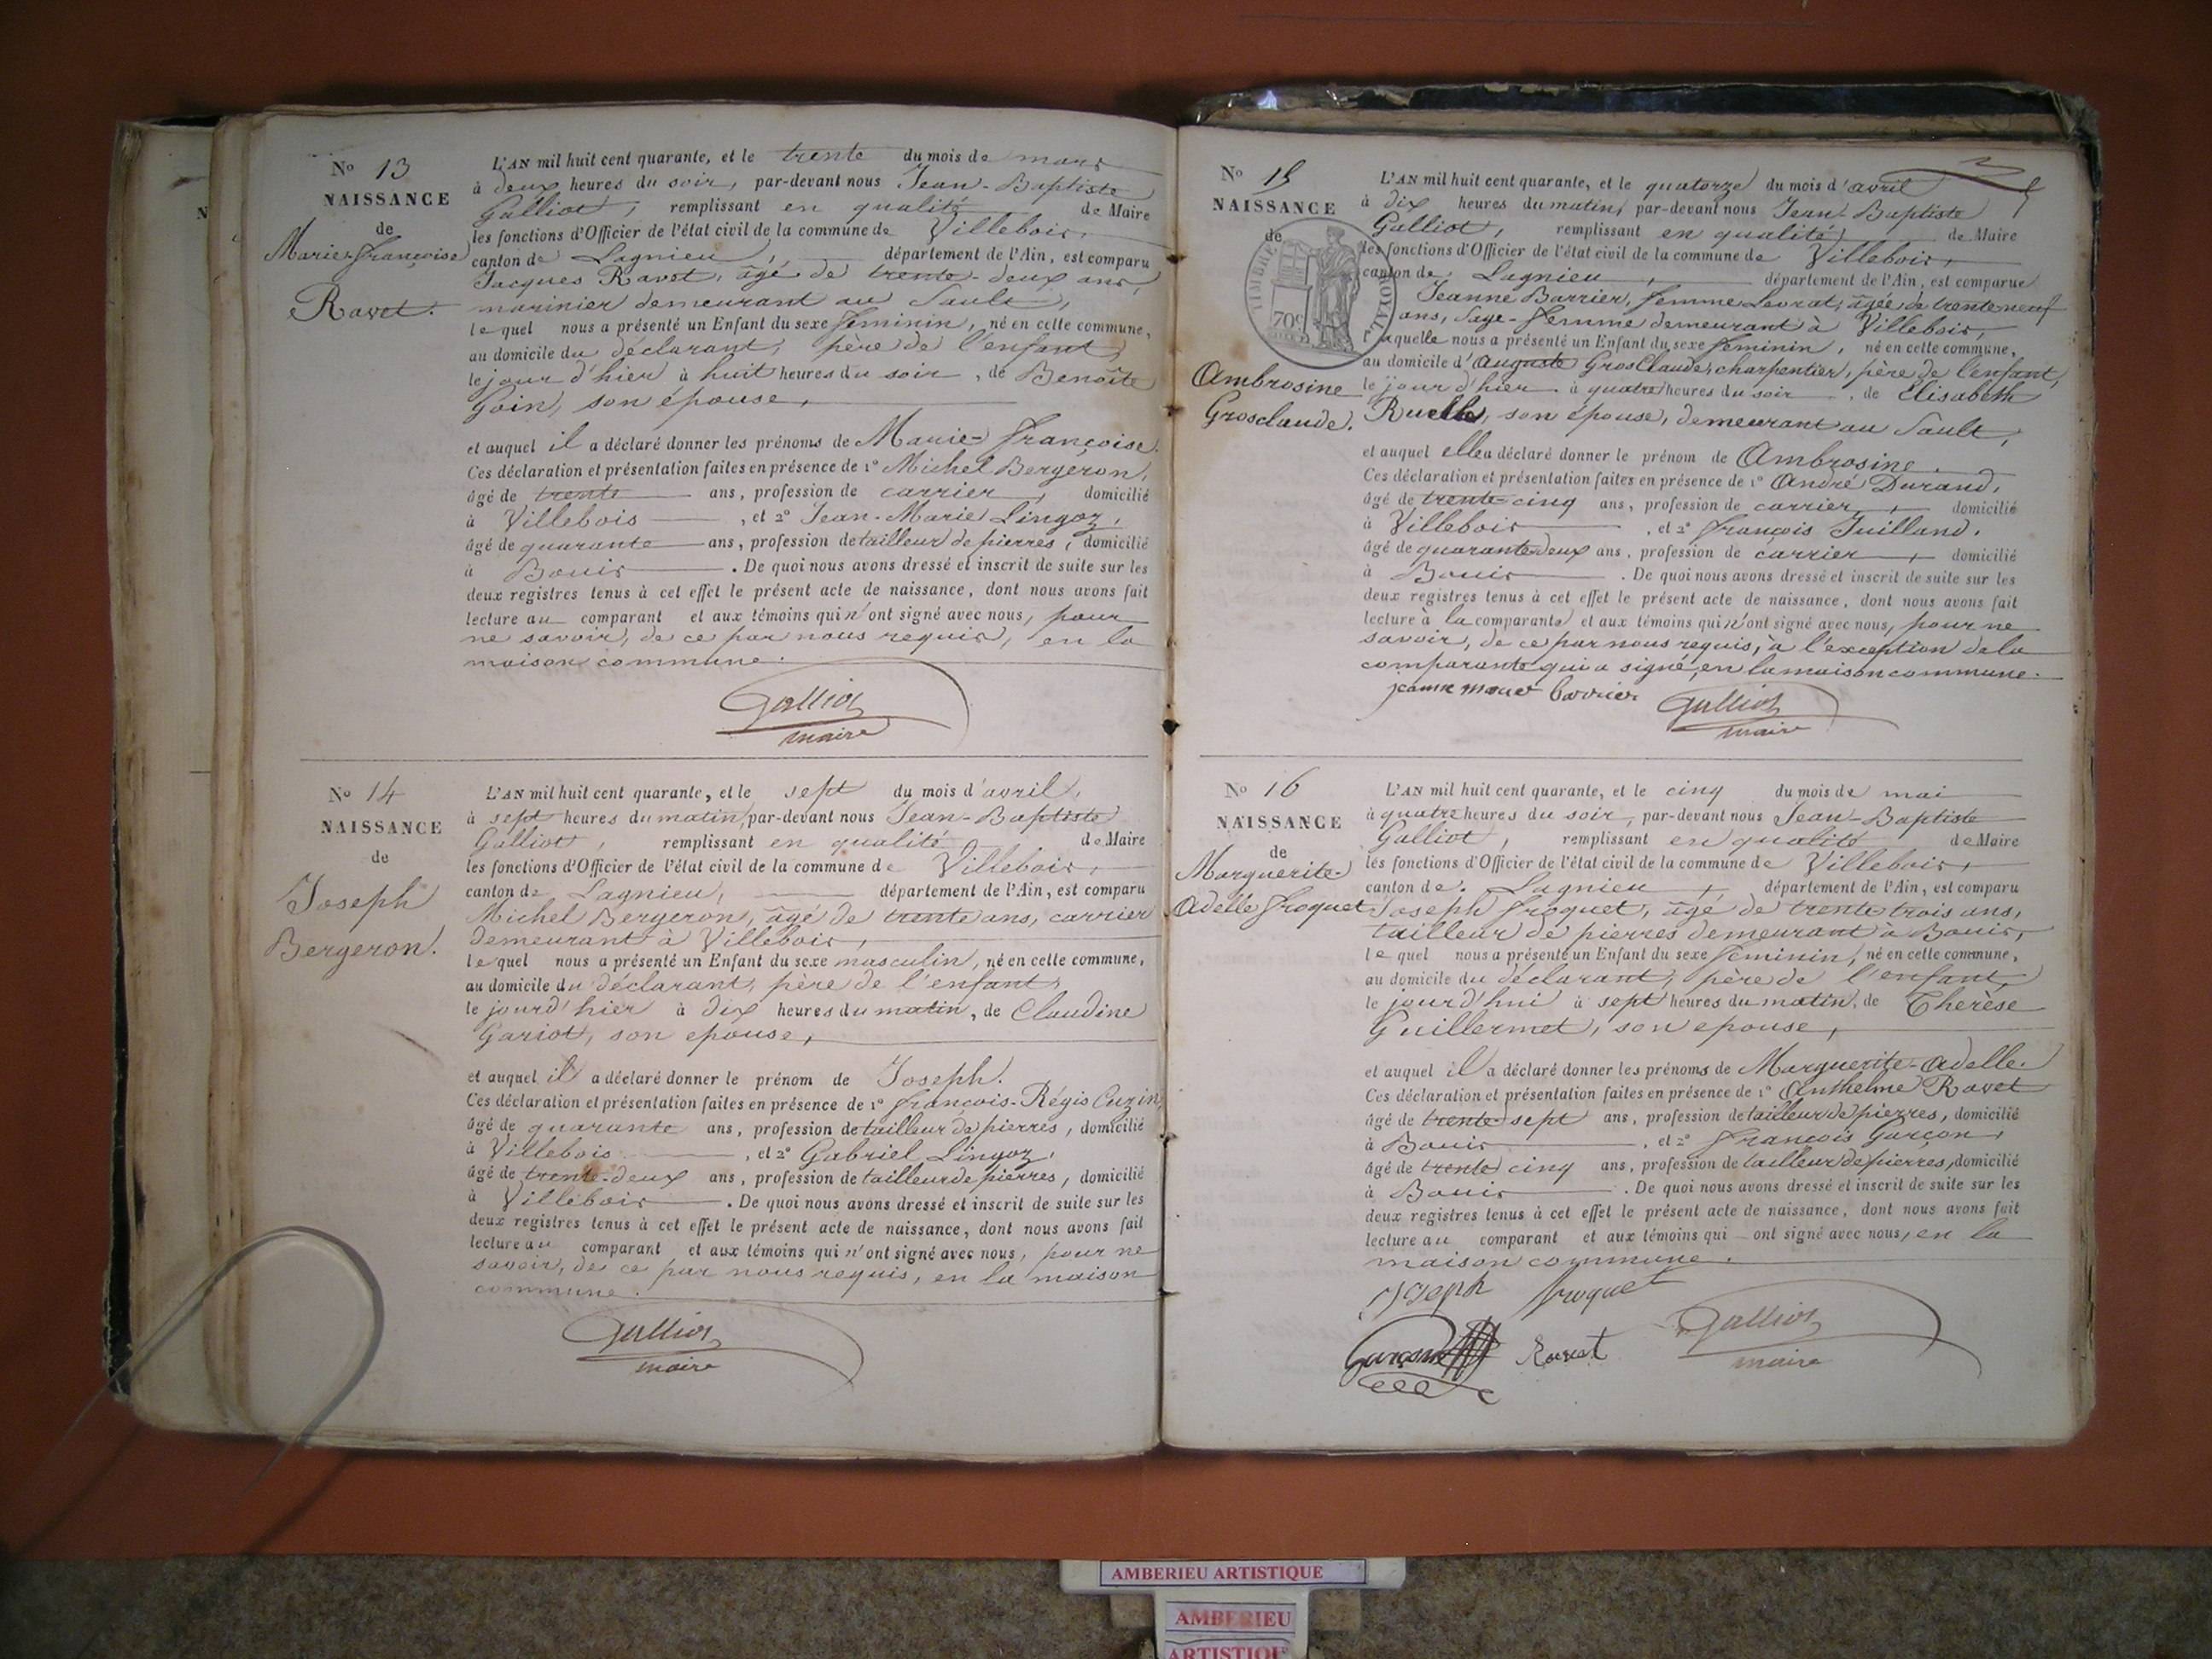 N° 13
NAISSANCE
de
Marie-françoise
Ravet.
L'AN mil huit cent quarante, et le trente du mois de mars
à deux heures du soir, par-devant nous Jean-Baptiste
Galliot, remplissant en qualité de Maire
les fonctions d'Officier de l'état civil de la commune de Villebois,
canton de Lagnieu, département de l'Ain, est comparu
Jacques Ravet, âgé de trente-deux ans,
marinier demeurant au Sault,
lequel nous a présenté un Enfant du sexe féminin, né en cette commune,
au domicile du déclarant, père de l'enfant,
le jour d'hier à huit heures du soir, de Benoîte
Goin, son épouse,
et auquel il a déclaré donner les prénoms de Marie-françoise.
Ces déclaration et présentation faites en présence de 1° Michel Bergeron,
âgé de trente ans, profession de carrier, domicilié
à Villebois, et 2° Jean-Marie Lingoz,
âgé de quarante ans, profession de tailleur de pierres, domicilié
à Bouis. De quoi nous avons dressé et inscrit de suite sur les
deux registres tenus à cet effet le présent acte de naissance, dont nous avons fait
lecture au comparant et aux témoins qui n'ont signé avec nous, pour
ne savoir, de ce par nous requis, en la
maison commune.
Galliot
maire
N° 14
NAISSANCE
de
Joseph
Bergeron.
L'AN mil huit cent quarante, et le sept du mois d'avril,
à sept heures du matin, par-devant nous Jean-Baptiste
Galliot, remplissant en qualité de Maire
les fonctions d'Officier de l'état civil de la commune de Villebois,
canton de Lagnieu, département de l'Ain, est comparu
Michel Bergeron, âgé de trente ans, carrier
demeurant à Villebois,
lequel nous a présenté un Enfant du sexe masculin, né en cette commune,
au domicile du déclarant, père de l'enfant,
le jour d'hier à dix heures du matin, de Claudine
Gariot, son epouse,
et auquel il a déclaré donner le prénom de Joseph.
Ces déclaration et présentation faites en présence de 1° françois-Régis Cuzin,
âgé de quarante ans, profession de tailleur de pierres, domicilié
à Villebois, et 2° Gabriel Lingoz,
âgé de trente-deux ans, profession de tailleur de pierres, domicilié
à Villebois. De quoi nous avons dressé et inscrit de suite sur les
deux registres tenus à cet effet le présent acte de naissance, dont nous avons fait
lecture au comparant et aux témoins qui n'ont signé avec nous, pour ne
savoir, de ce par nous requis, en la maison
commune.
Galliot
maire
N° 15
NAISSANCE
de
TIMBRE ROYAL
70c
Ambrosine
Grosclaude.
L'AN mil huit cent quarante, et le quatorze du mois d'avril
à dix heures du matin, par-devant nous Jean-Baptiste
Galliot, remplissant en qualité de Maire
les fonctions d'Officier de l'état civil de la commune de Villebois,
canton de Lagnieu, département de l'Ain, est comparue
Jeanne Barrier, femme Levrat, âgée de trente neuf
ans, Sage-femme demeurant à Villebois,
laquelle nous a présenté un Enfant du sexe féminin, né en cette commune,
au domicile d'auguste GrosClaude, charpentier, père de l'enfant,
le jour d'hier à quatre heures du soir, de Elisabeth
Ruelle, son epouse, demeurant au Sault,
et auquel elle a déclaré donner le prénom de Ambrosine.
Ces déclaration et présentation faites en présence de 1° André Durand,
âgé de trente-cinq ans, profession de carrier, domicilié
à Villebois, et 2° françois Juilland,
âgé de quarante deux ans, profession de carrier, domicilié
à Bouis. De quoi nous avons dressé et inscrit de suite sur les
deux registres tenus à cet effet le présent acte de naissance, dont nous avons fait
lecture à la comparante et aux témoins qui n'ont signé avec nous, pour ne
savoir, de ce par nous requis, à l'exception de la
comparante qui a signé, en la maison commune.
jeanne barrier
Galliot
maire
N° 16
NAISSANCE
de
Marguerite-
Adelle froquet
L'AN mil huit cent quarante, et le cinq du mois de mai
à quatre heures du soir, par-devant nous Jean-Baptiste
Galliot, remplissant en qualité de Maire
les fonctions d'Officier de l'état civil de la commune de Villebois,
canton de Lagnieu, département de l'Ain, est comparu
Joseph froquet, âgé de trente trois ans,
tailleur de pierres demeurant à Bouis,
lequel nous a présenté un Enfant du sexe féminin, né en cette commune,
au domicile du déclarant, père de l'enfant,
le jour d'hui à sept heures du matin, de Therèse
Guillermet, son epouse,
et auquel il a déclaré donner les prénoms de Marguerite-adelle.
Ces déclaration et présentation faites en présence de 1° Anthelme Ravet
âgé de trente-sept ans, profession de tailleur de pierres, domicilié
à Bouis, et 2° françois Garçon,
âgé de trente cinq ans, profession de tailleur de pierres, domicilié
à Bouis. De quoi nous avons dressé et inscrit de suite sur les
deux registres tenus à cet effet le présent acte de naissance, dont nous avons fait
lecture au comparant et aux témoins qui ont signé avec nous, en la
maison commune.
Joseph froquet
Garçon Ravet Galliot
maire
AMBERIEU ARTISTIQUE
AMBERIEU
ARTISTIQUE